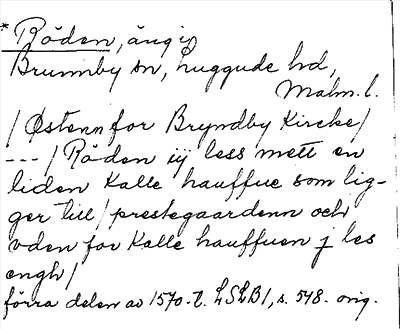 * Röden, äng i
Brunnby sn, Luggude hd,
Malm. l.
/ Østenn for Bryndby Kircke /
--- / Röden iij less mett en
liden Kalle hauffue som lig-
ger till / prestegaardenn och
vden for Kalle hauffuen j les
engh /
förra delen av 1570-t. LSLB1, s. 548. orig.